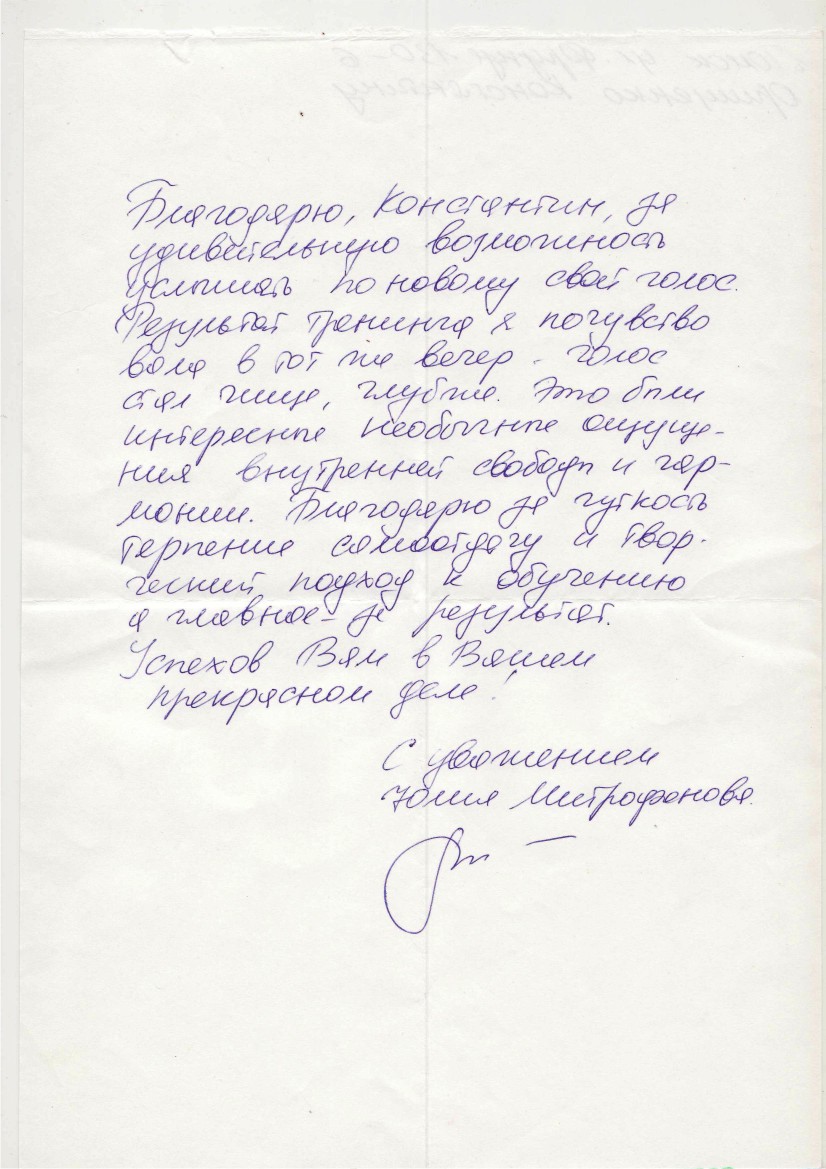 Благодарю, Константин, за
удивительную возможность
услышать по новому свой голос.
Результат тренинга я почувство
вала в тот же вечер - голос
стал чище, глубже. Это были
интересные необычные ощуще-
ния внутренней свободы и гар-
монии. Благодарю за чуткость
терпение самоотдачу и твор-
ческий подход к обучению
а главное - за результат.
Успехов Вам в Вашем
прекрасном деле!
С уважением
Юлия Митрофанова.